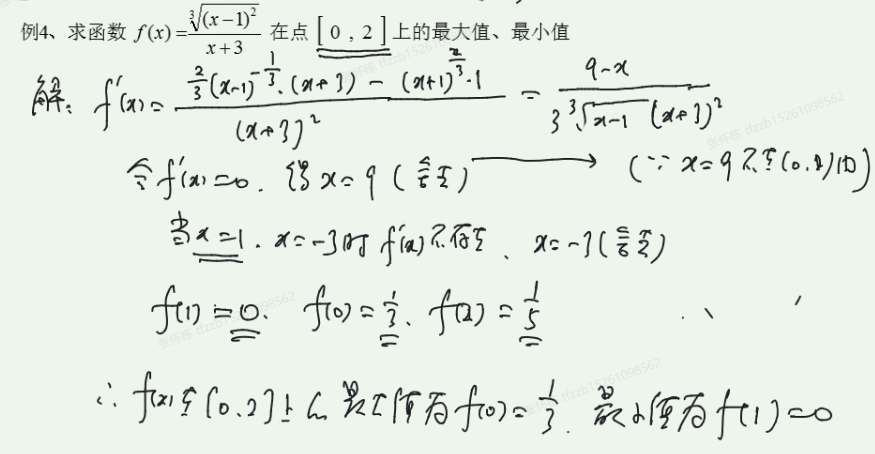 例4、求函数 f(x)=∛(x−1)²/(x+3) 在点 [0,2] 上的最大值、最小值
解: f'(x)= (2/3(x-1)^(-1/3)·(x+3) − (x+1)^(2/3)·1)/(x+3)² = (9-x)/(3∛(x-1) (x+3)²)
令f'(x)=0. 得x=9 (舍去) → (∵ x=9不在(0,2)内)
当x=1. x=-3时 f'(x)不存在、x=-3(舍去)
f(1)=0. f(0)=1/3、f(2)=1/5
∴ f(x)在[0.2]上的最大值为f(0)=1/3. 最小值为f(1)=0